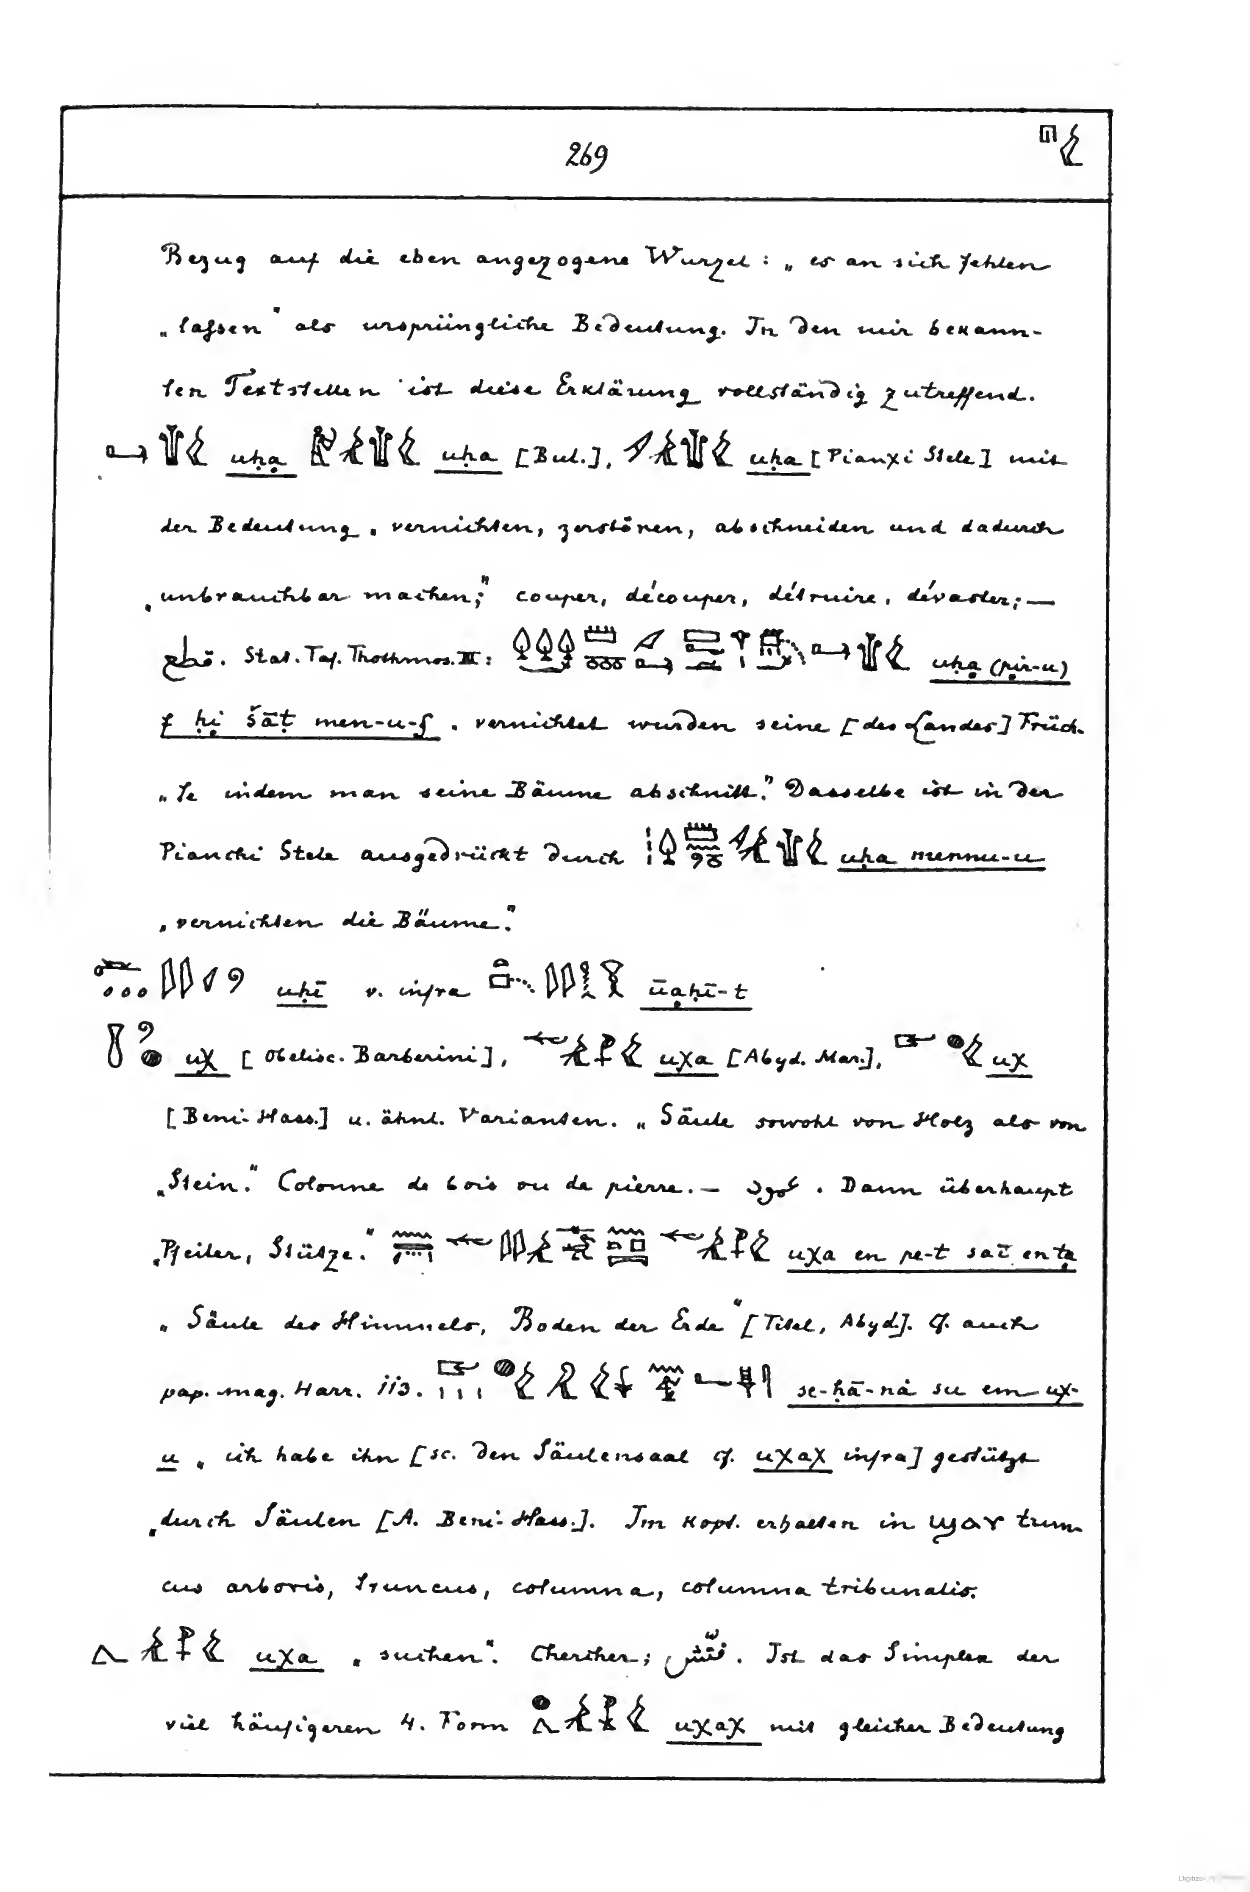 269
Bezug auf die eben angezogene Wurzel: „es an sich fehlen
„lassen" als ursprüngliche Bedeutung. In den mir bekann-
ten Textstellen ist diese Erklärung vollständig zutreffend.
uḥa uḥa [Bul.], uḥa [Pianχi Stele] mit
der Bedeutung „vernichten, zerstören, abschneiden und dadurch
„unbrauchbar machen;" couper, découper, détruire, dévaster; —
Stat. Taf. Thothmos. III: uḥa (pir-u)
f ḥi šāṭ men-u-f „vernichtet wurden seine [des Landes] Früch-
„te indem man seine Bäume abschnitt." Dasselbe ist in der
Pianchi Stele ausgedrückt durch uḥa mennu-u
„vernichten die Bäume."
uḥī v. infra ūaḥī-t
uχ [Obelisc. Barberini], uχa [Abyd. Mar.], uχ
[Beni-Hass.] u. ähnl. Varianten. „Säule sowohl von Holz als von
„Stein." Colonne de bois ou de pierre. — عمود. Dann überhaupt
„Pfeiler, Stütze." uχa en pe-t saī en ta
„Säule des Himmels, Boden der Erde" [Titel, Abyd]. Cf. auch
pap. mag. Harr. se-ḥā-nȧ su em uχ-
u „ich habe ihn [sc. den Säulensaal cf. uχaχ infra] gestützt
„durch Säulen [A. Beni-Hass.]. Im Kopt. erhalten in trun-
cus arboris, truncus, columna, columna tribunalis.
uχa „suchen". Chercher; فتّش. Ist das Simplex der
viel häufigeren 4. Form uχaχ mit gleicher Bedeutung